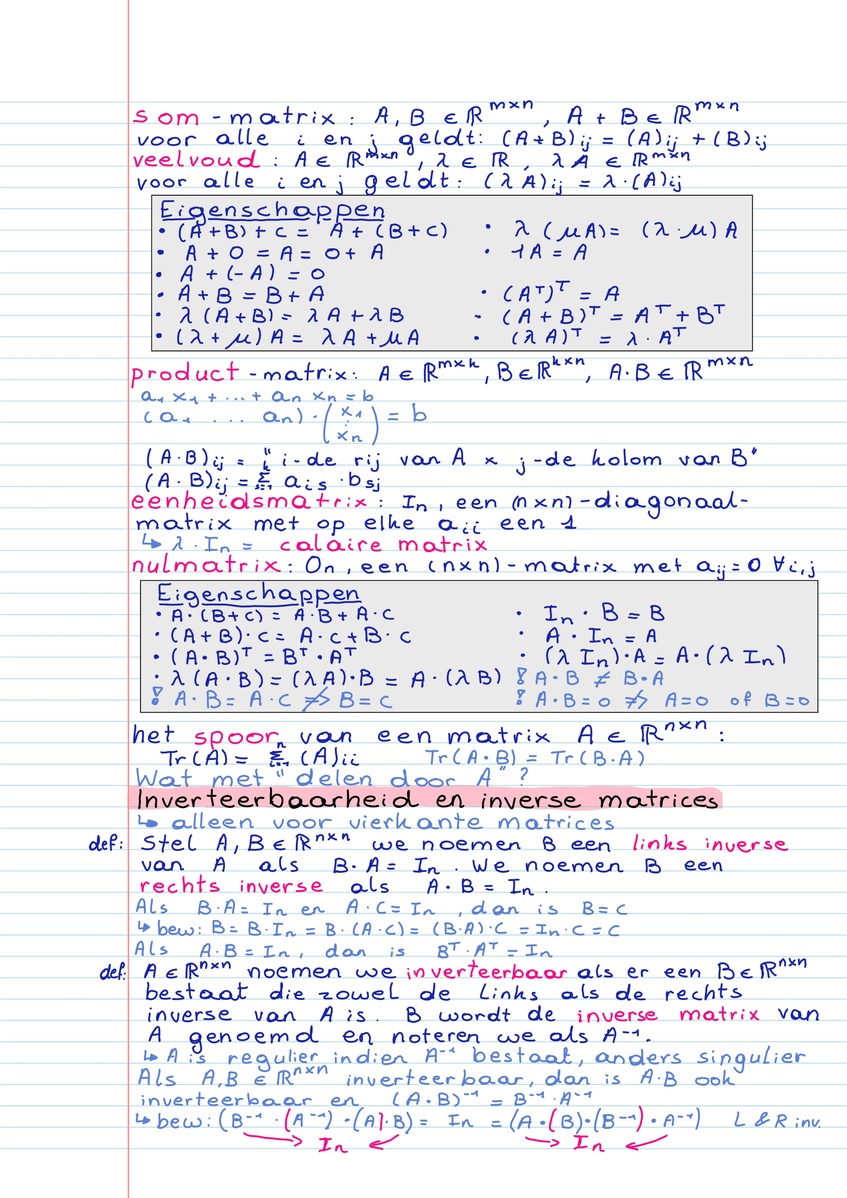 som-matrix : A, B ∈ ℝ^{m×n}, A + B ∈ ℝ^{m×n}
voor alle i en j geldt: (A+B)ij = (A)ij + (B)ij
veelvoud : A ∈ ℝ^{m×n}, λ ∈ ℝ, λA ∈ ℝ^{m×n}
voor alle i en j geldt: (λA)ij = λ·(A)ij
Eigenschappen
• (A+B)+C = A+(B+C) • λ(μA) = (λ·μ)A
• A + 0 = A = 0 + A • 1A = A
• A + (-A) = 0
• A + B = B + A • (Aᵀ)ᵀ = A
• λ(A+B) = λA + λB • (A+B)ᵀ = Aᵀ + Bᵀ
• (λ+μ)A = λA + μA • (λA)ᵀ = λ·Aᵀ
product-matrix: A ∈ ℝ^{m×k}, B ∈ ℝ^{k×n}, A·B ∈ ℝ^{m×n}
a₁x₁ + ... + aₙxₙ = b
(a₁ ... aₙ)·(x₁ ⋮ xₙ) = b
(A·B)ij = "i-de rij van A × j-de kolom van B"
(A·B)ij = Σ^k_{s=1} ais·bsj
eenheidsmatrix : In, een (n×n)-diagonaal-
matrix met op elke aii een 1
↳ λ·In = calaire matrix
nulmatrix: On, een (n×n)-matrix met aij = 0 ∀i,j
Eigenschappen
• A·(B+C) = A·B + A·C • In·B = B
• (A+B)·C = A·C + B·C • A·In = A
• (A·B)ᵀ = Bᵀ·Aᵀ • (λIn)·A = A·(λIn)
• λ(A·B) = (λA)·B = A·(λB) ! A·B ≠ B·A
! A·B = A·C ⇏ B = C ! A·B = 0 ⇏ A=0 of B=0
het spoor van een matrix A ∈ ℝ^{n×n} :
Tr(A) = Σ^n_{i=1} (A)ii Tr(A·B) = Tr(B·A)
Wat met "delen door A" ?
Inverteerbaarheid en inverse matrices
↳ alleen voor vierkante matrices
def: Stel A, B ∈ ℝ^{n×n} we noemen B een links inverse
van A als B·A = In. We noemen B een
rechts inverse als A·B = In.
Als B·A = In en A·C = In, dan is B = C
↳ bew: B = B·In = B·(A·C) = (B·A)·C = In·C = C
Als A·B = In, dan is Bᵀ·Aᵀ = In
def: A ∈ ℝ^{n×n} noemen we inverteerbaar als er een B ∈ ℝ^{n×n}
bestaat die zowel de links als de rechts
inverse van A is. B wordt de inverse matrix van
A genoemd en noteren we als A⁻¹.
↳ A is regulier indien A⁻¹ bestaat, anders singulier
Als A,B ∈ ℝ^{n×n} inverteerbaar, dan is A·B ook
inverteerbaar en (A·B)⁻¹ = B⁻¹·A⁻¹
↳ bew: (B⁻¹·(A⁻¹)·(A)·B) = In = (A·(B)·(B⁻¹)·A⁻¹) L & R inv.
→ In ← → In ←